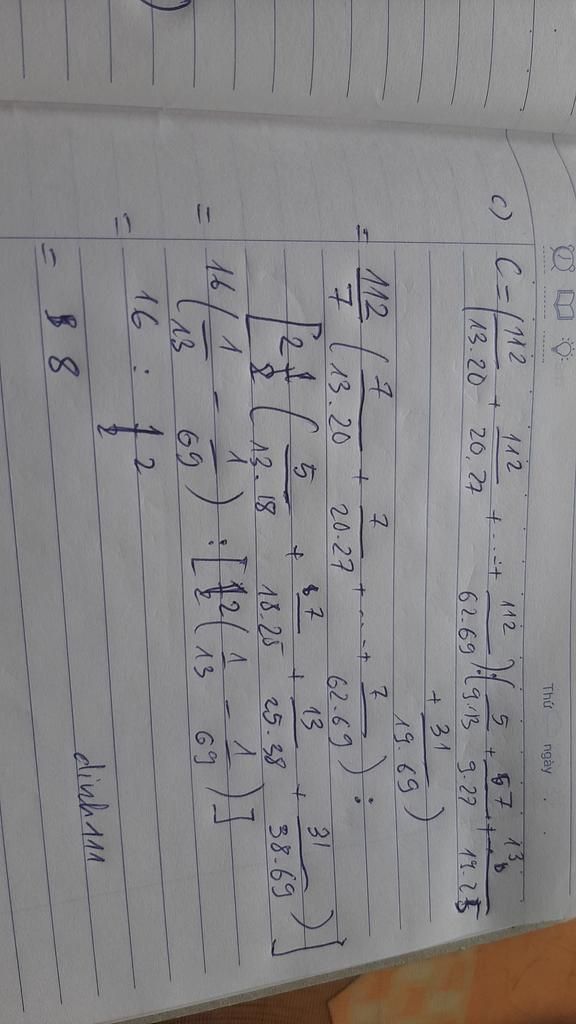 Thứ ngày
c) C = (112/13.20 + 112/20.27 + ... + 112/62.69) : (5/9.13 + 7/9.27 + 13/19.25
+ 31/19.69)
= 112/7 (7/13.20 + 7/20.27 + ... + 7/62.69) :
[2 (5/13.18 + 7/18.25 + 13/25.38 + 31/38.69)]
= 16 (1/13 - 1/69) : [2 (1/13 - 1/69)]
= 16 : 2
= 8
dinh111